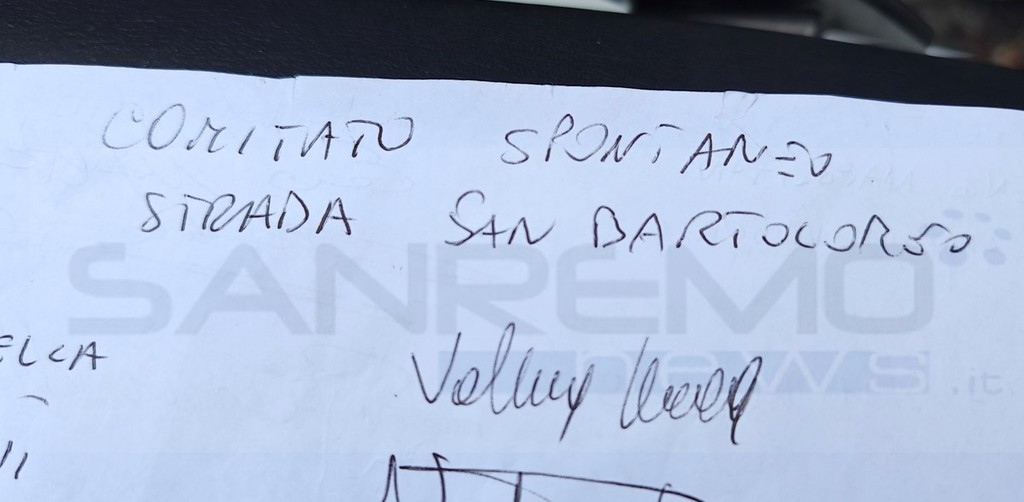 COMITATO SPONTANEO
STRADA SAN BARTOLOMEO
SANREMO
news.it
ELCA